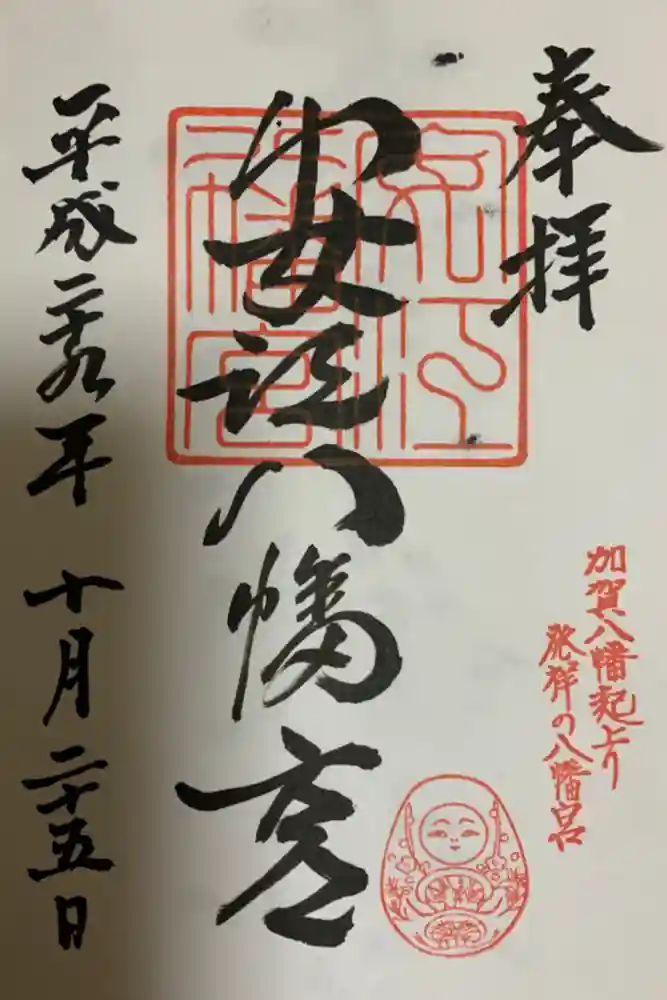 奉拝
加賀八幡起上り
発祥の八幡宮
安江八幡宮
平成二十九年 十月二十五日